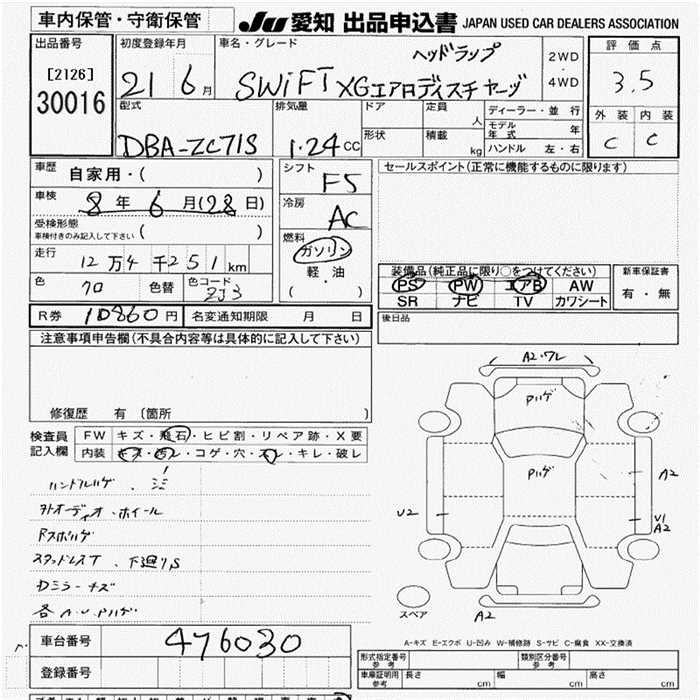 車内保管・守衛保管
JU 愛知 出品申込書 JAPAN USED CAR DEALERS ASSOCIATION
出品番号
[2126]
30016
初度登録年月
21 6月
車名・グレード
ヘッドランプ
SWiFT XGエアロディスチャージ
2WD
・
4WD
評価点
3.5
外装 内装
C C
型式
DBA-ZC71S
排気量
1.24CC
ドア
形状
定員 人
積載 kg
ディーラー・並行
モデル年式 年
ハンドル 左・右
車歴
自家用・( )
車検
8年 6月(28日)
受検形態
車検付きのみ記入して下さい ( )
走行
12万4千251km
色
クロ
色替
色コード
ZJ3
シフト
F5
冷房
AC
燃料
ガソリン
軽・油
( ・ )
セールスポイント(正常に機能するものに限ります)
装備品(純正品に限り○をつけてください)
PS PW エアB AW
SR ナビ TV カワシート
新車保証書
有・無
R券 10860円
名変通知期限 月 日
後日品
注意事項申告欄(不具合内容等は具体的に記入して下さい)
修復歴 有〔箇所 〕
検査員
記入欄
FW キズ・飛石・ヒビ割・リペア跡・X要
内装 キズ・汚レ・コゲ・穴・スレ・キレ・破レ
ハンドルハゲ・
外オーディオ・ホイール
Rスポハゲ
スタッドレスT、下廻りS
Dミラーキズ
各A.U.Pハゲ
A2・ワレ
Pハゲ
Pハゲ
A2
U2
U1
A2
A2
スペア
A-キズ E-エクボ U-凹み W-補修跡 S-サビ C-腐食 XX-交換済
車台番号
476030
登録番号
形式指定番号
参考
類別区分番号
参考
車庫証明用
参考
長さ cm
幅 cm
高さ cm